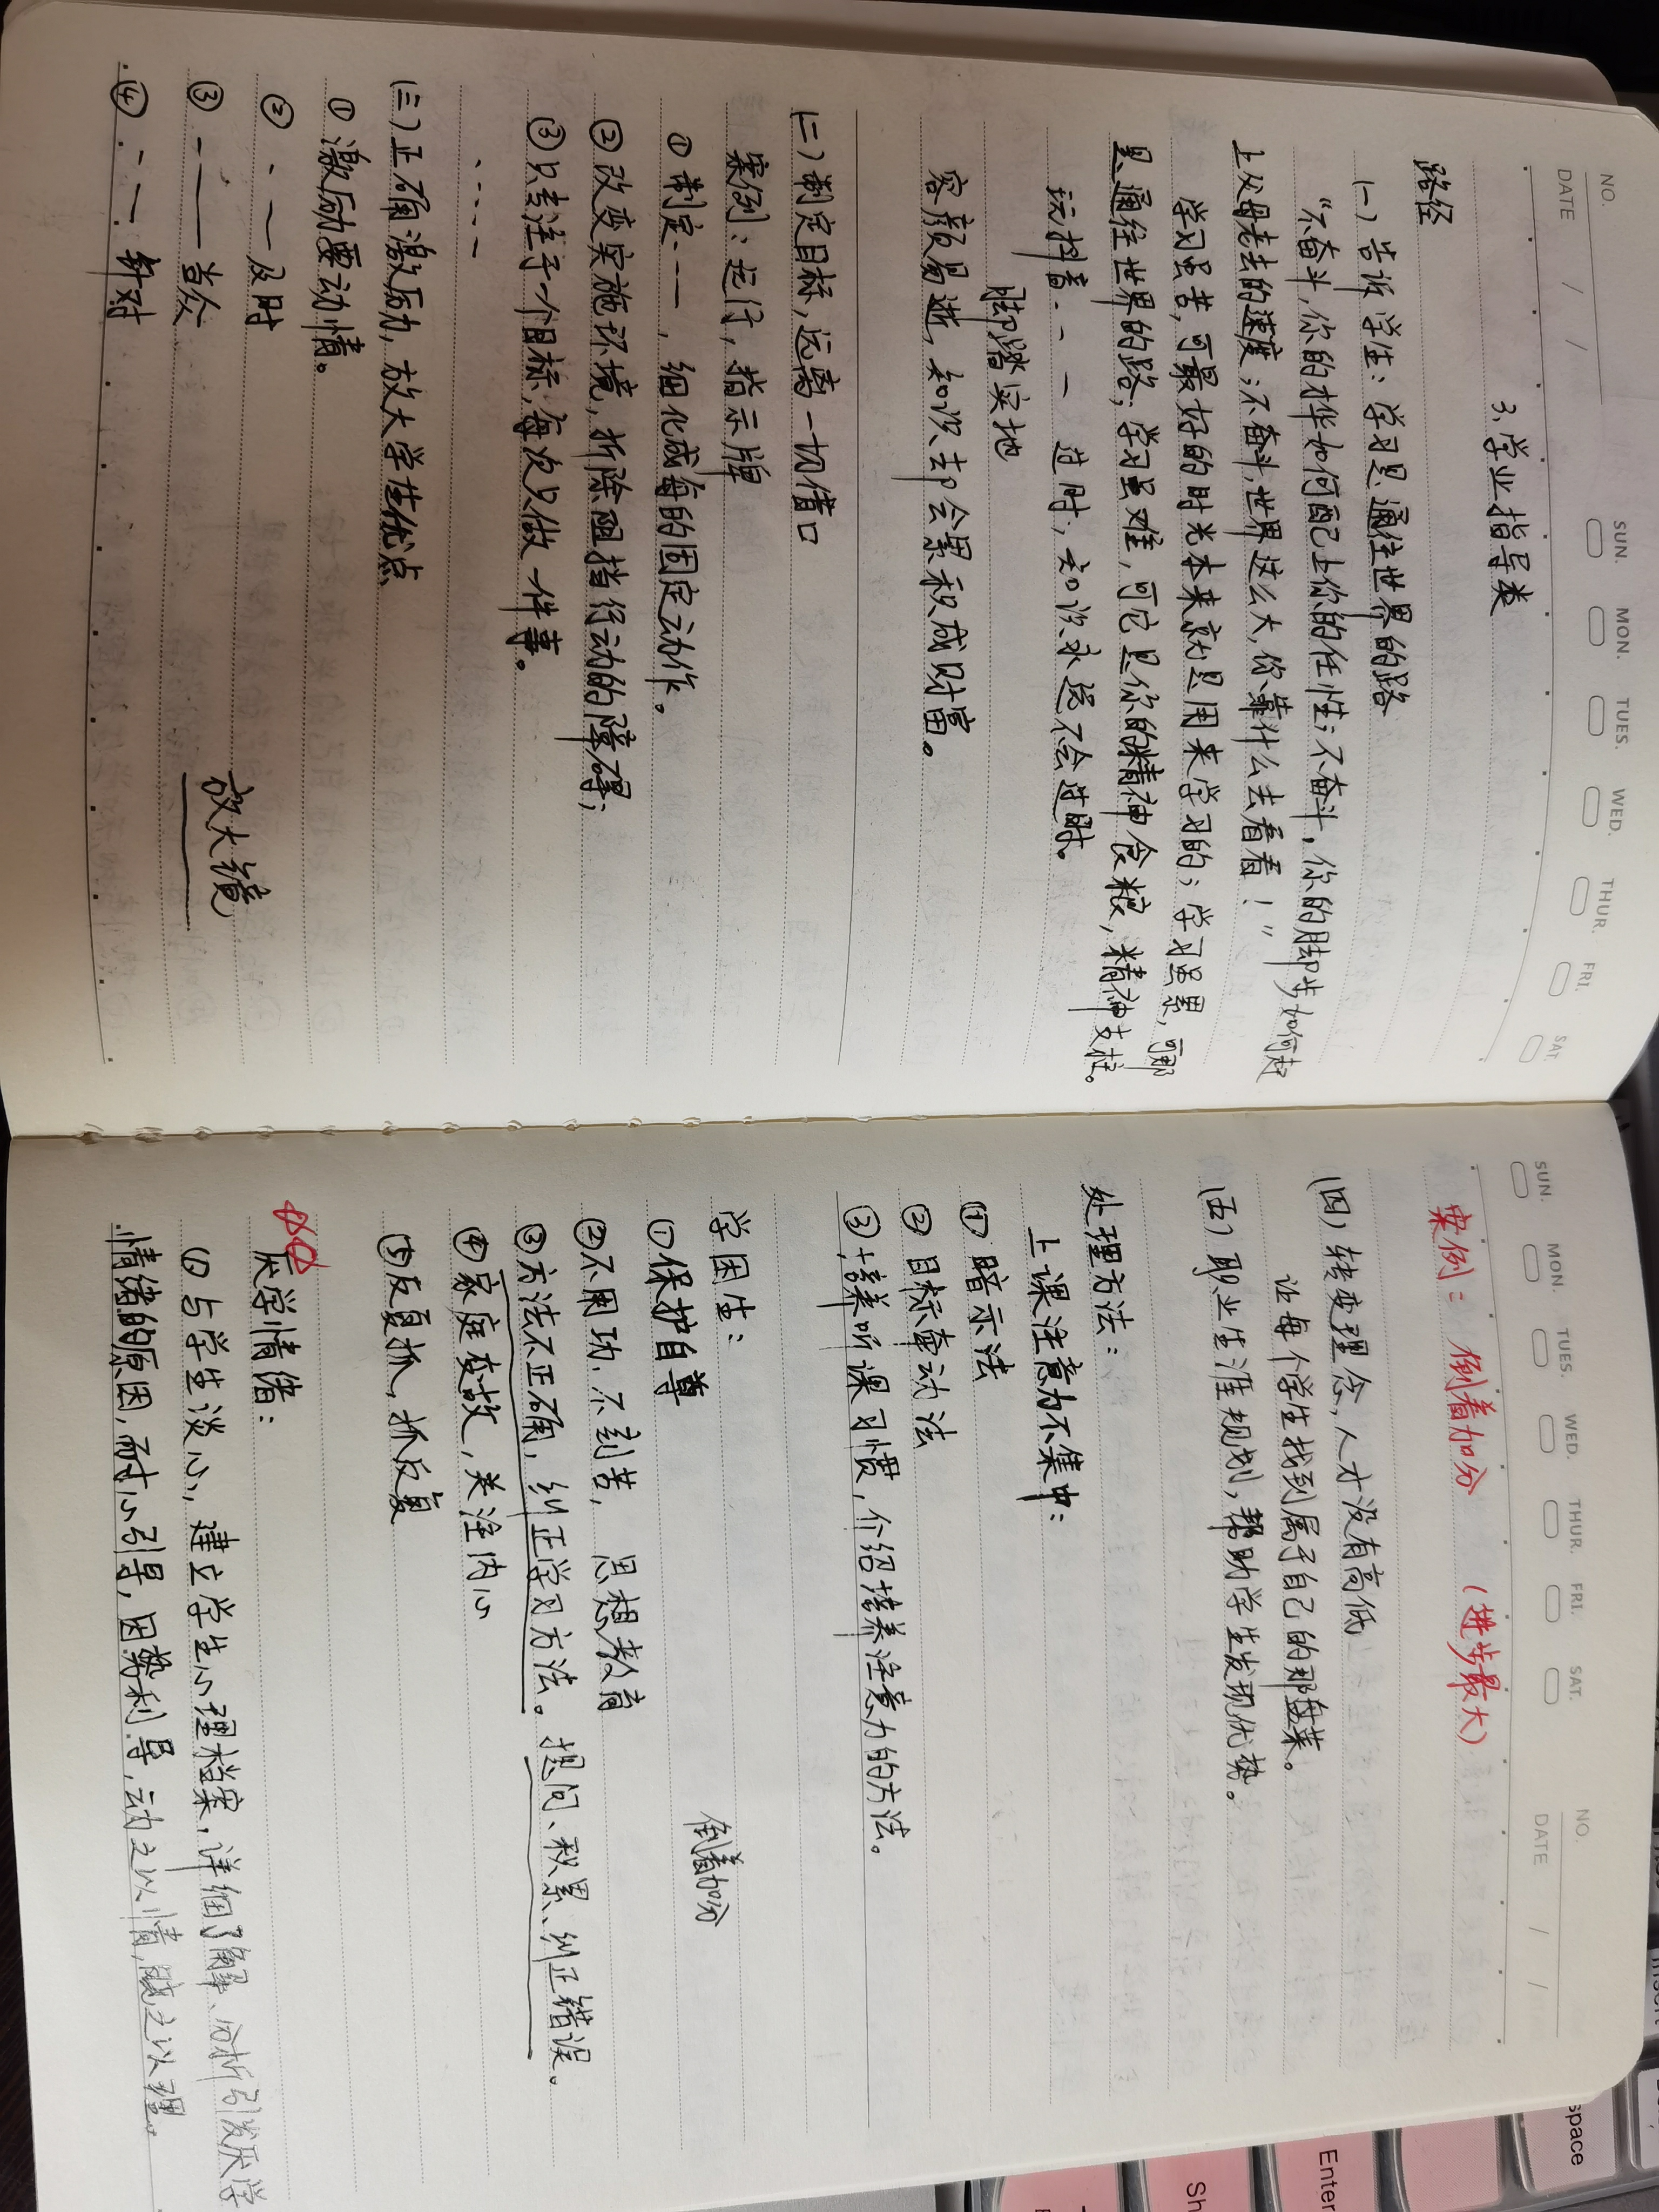 NO.
DATE / /
SUN. MON. TUES. WED. THUR. FRI. SAT
3.学业指导类
路径
(一)告诉学生:学习是通往世界的路
“不奋斗,你的才华如何配上你的任性;不奋斗,你的脚步如何赶
上父母老去的速度;不奋斗,世界这么大,你靠什么去看看!”
学习虽苦,可最好的时光本来就是用来学习的;学习虽累,可那
是通往世界的路;学习虽难,可它是你的精神食粮,精神支柱。
玩抖音--- 过时,知识永远不会过时。
脚踏实地
容颜易逝,知识却会累积成财富。
(二)制定目标,远离一切借口
案例:远行,指示牌
①制定---,细化成每的固定动作。
②改变实施环境,拆除阻挡行动的障碍;
③只专注于一个目标,每次只做一件事。
----
(三)正确激励,放大学生优点
①激励要动情。
②--及时
③--当众
放大镜
④--针对
SUN. MON. TUES. WED. THUR. FRI. SAT.
NO.
DATE / /
案例:倒着加分 (进步最大)
(四)转变理念,人才没有高低
让每个学生找到属于自己的那盘菜。
(五)职业生涯规划,帮助学生发现优势。
处理方法:
上课注意力不集中:
①暗示法
②目标牵动法
③培养听课习惯,介绍培养注意力的方法。
学困生:
倒着加分
①保护自尊
②不用功,不刻苦,思想教育
③方法不正确,纠正学习方法。提问、积累、纠正错误。
④家庭变故,关注内心
⑤反复抓,抓反复
厌学情绪:
①与学生谈心,建立学生心理档案,详细了解、分析引发厌学
情绪的原因,耐心引导,因势利导,动之以情,晓之以理。
space
Enter
Sh